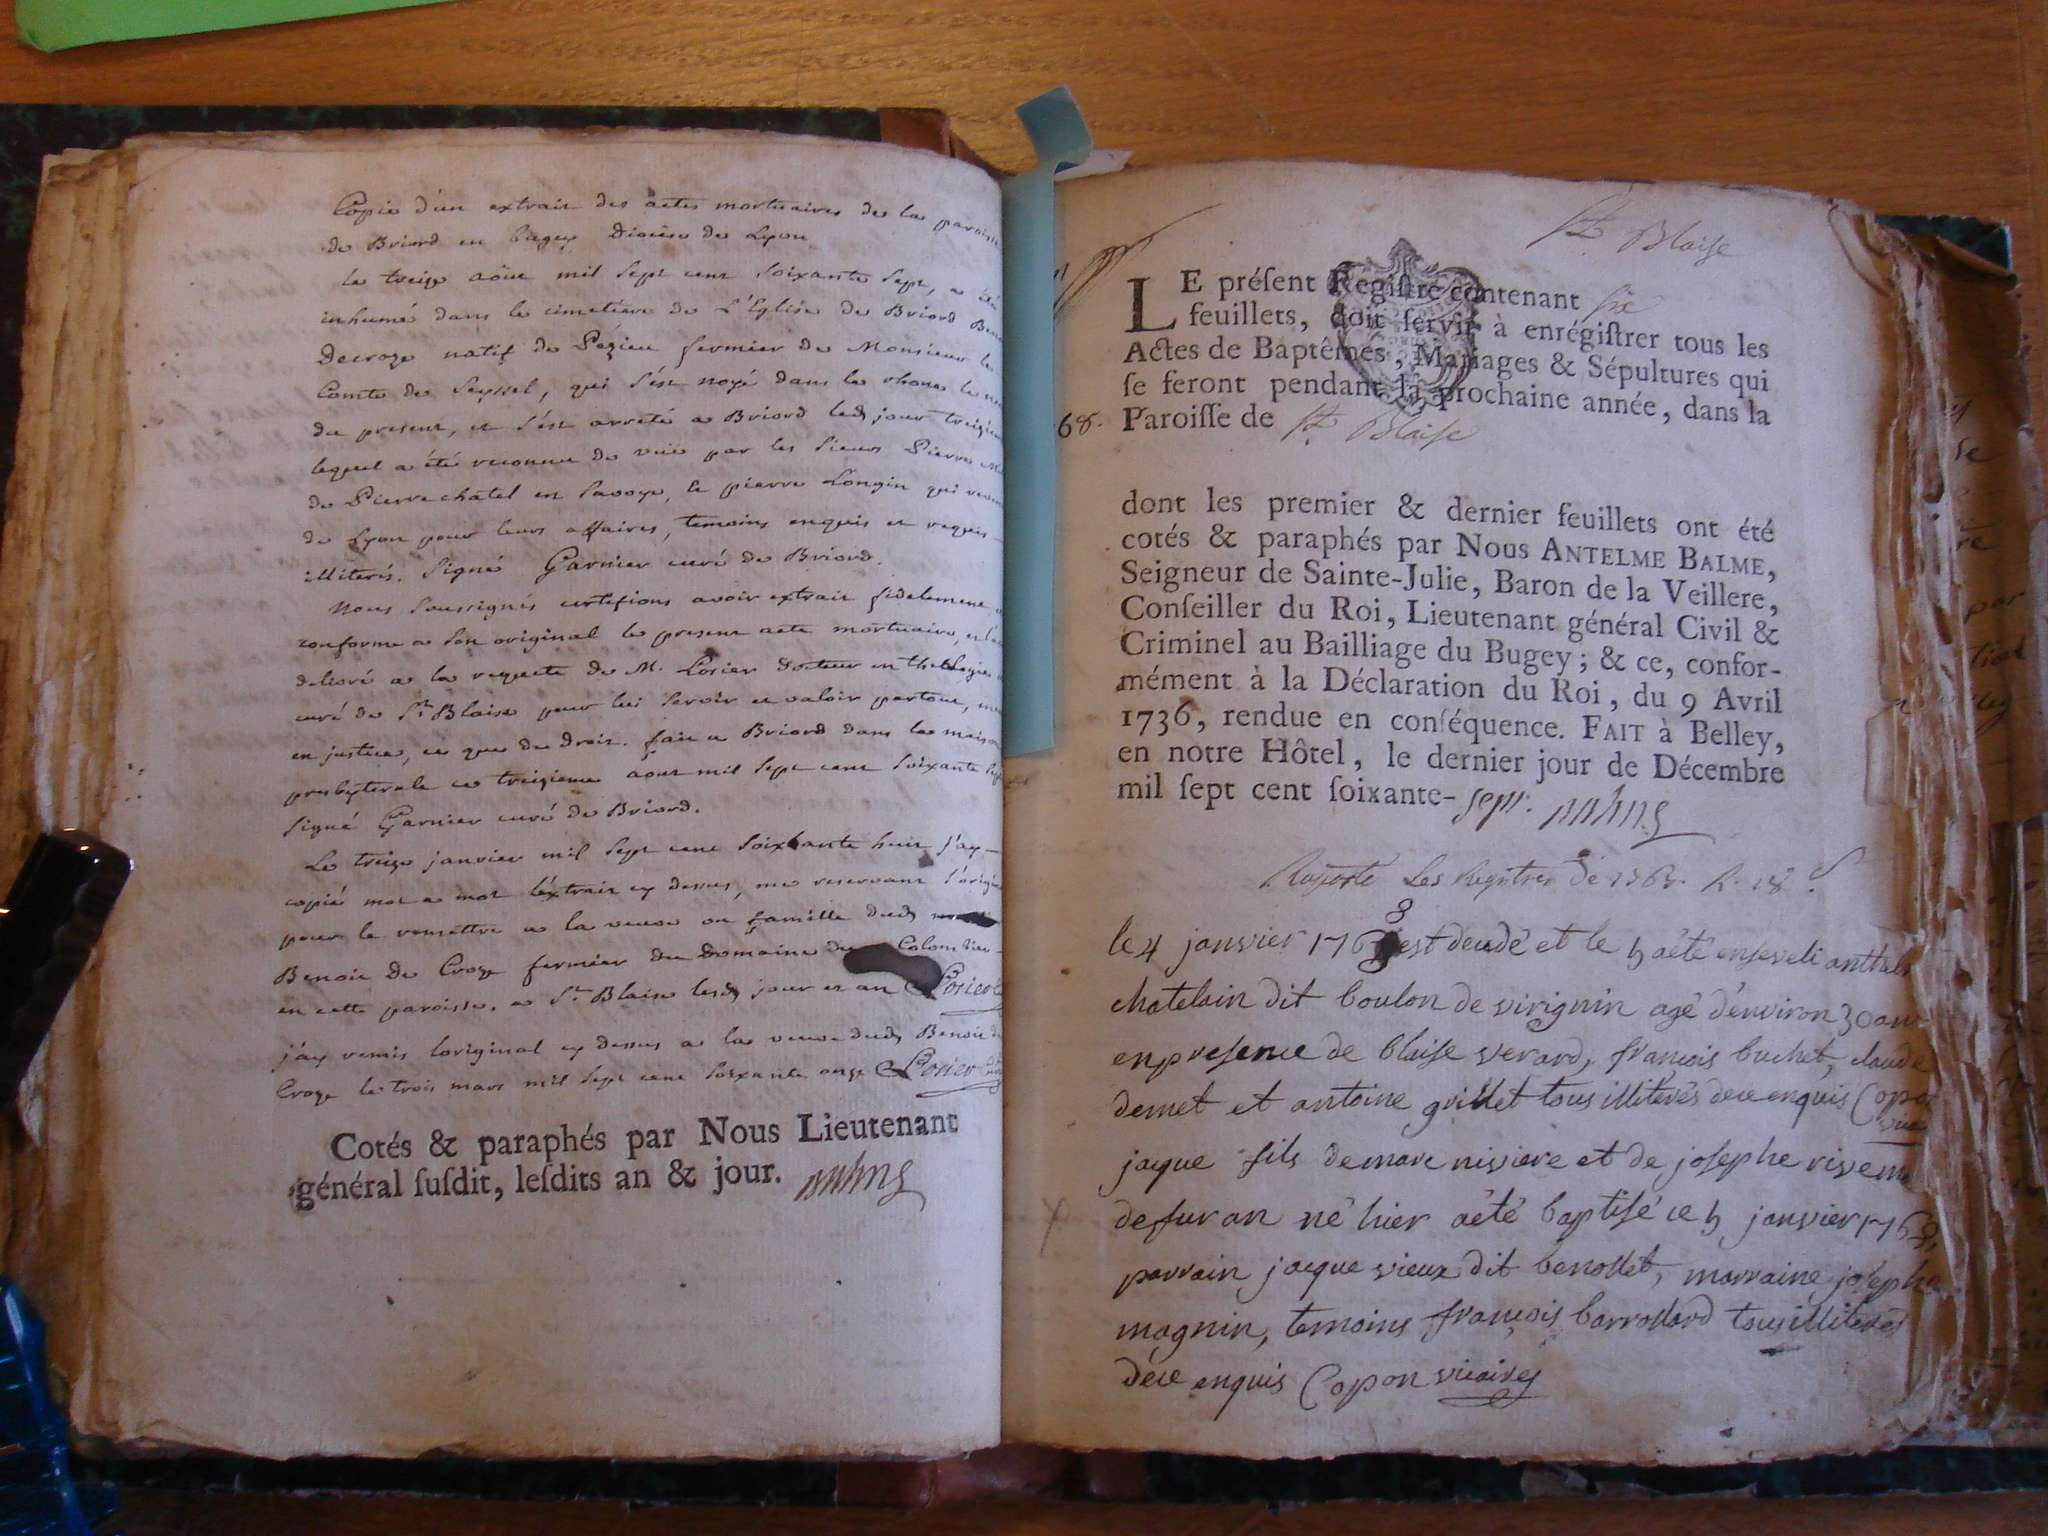 Copie d'un extrait des actes mortuaires de la paroisse
de Briord en bugey Diocèse de Lyon
le treize aôut mil sept cent soixante sept, a été
inhumé dans le cimetière de L'Eglise de Briord
Decroze natif de Pézieu fermier de Monsieur le
Comte de Seyssel, qui s'est noyé dans le rhone le
du present, et s'est arrêté a Briord led jour treizieme
lequel a été reconnu de par les sieurs Pierre
de Pierrechatel en savoye, & pierre Longin qui
de Lyon pour leurs affaires, temoins enquis et requis
illiterés. signé Garnier curé de Briord.
Nous soussignés certifions avoir extrait fidelement
conforme a son original le present acte mortuaire,
delivré a la requete de M. docteur en theologie
curé de St Blaise pour lui servir et valoir partout,
en justice, ce que de droit. fait a Briord dans la maison
presbyterale ce treizieme aout mil sept cent soixante sept
signé Garnier curé de Briord.
Le treize janvier mil sept cent soixante huit j'ay
copié mot a mot l'extrait cy dessus, me reservant l'original
pour le remettre a la veuve ou famille dud
Benoit De Croze fermier du Domaine du Colombier
en cette paroisse. a St Blaise lesd jour et an
j'ay remis l'original cy dessus a la veuve dud Benoit de
Croze le trois mars mil sept cent soixante onze
Cotés & paraphés par Nous Lieutenant
général ſuſdit, leſdits an & jour.
St Blaise
LE préſent Regiſtre contenant six
feuillets, doit ſervir à enrégiſtrer tous les
Actes de Baptêmes, Mariages & Sépultures qui
ſe feront pendant la prochaine année, dans la
68. Paroiſſe de St Blaise
dont les premier & dernier feuillets ont été
cotés & paraphés par Nous ANTELME BALME,
Seigneur de Sainte-Julie, Baron de la Veillere,
Conſeiller du Roi, Lieutenant général Civil &
Criminel au Bailliage du Bugey ; & ce, confor-
mément à la Déclaration du Roi, du 9 Avril
1736, rendue en conſéquence. FAIT à Belley,
en notre Hôtel, le dernier jour de Décembre
mil ſept cent ſoixante-sept.
Les Registres de
8
le 4 janvier 176 est decedé et le 5 a été enseveli
chatelain dit boulon de virignin agé d'environ 30 ans
en presence de blaise verard, francois buchet, claude
demet et antoine grillet tous illiterés de ce enquis Copon
vic
jacque fils de marc niviere et de josephe
de furan né hier a été baptisé ce 5 janvier 1768,
parrain jacque vieux dit benollet, marraine josephe
magnin, temoins françois barrollard tous illiterés
de ce enquis Copon vicaire